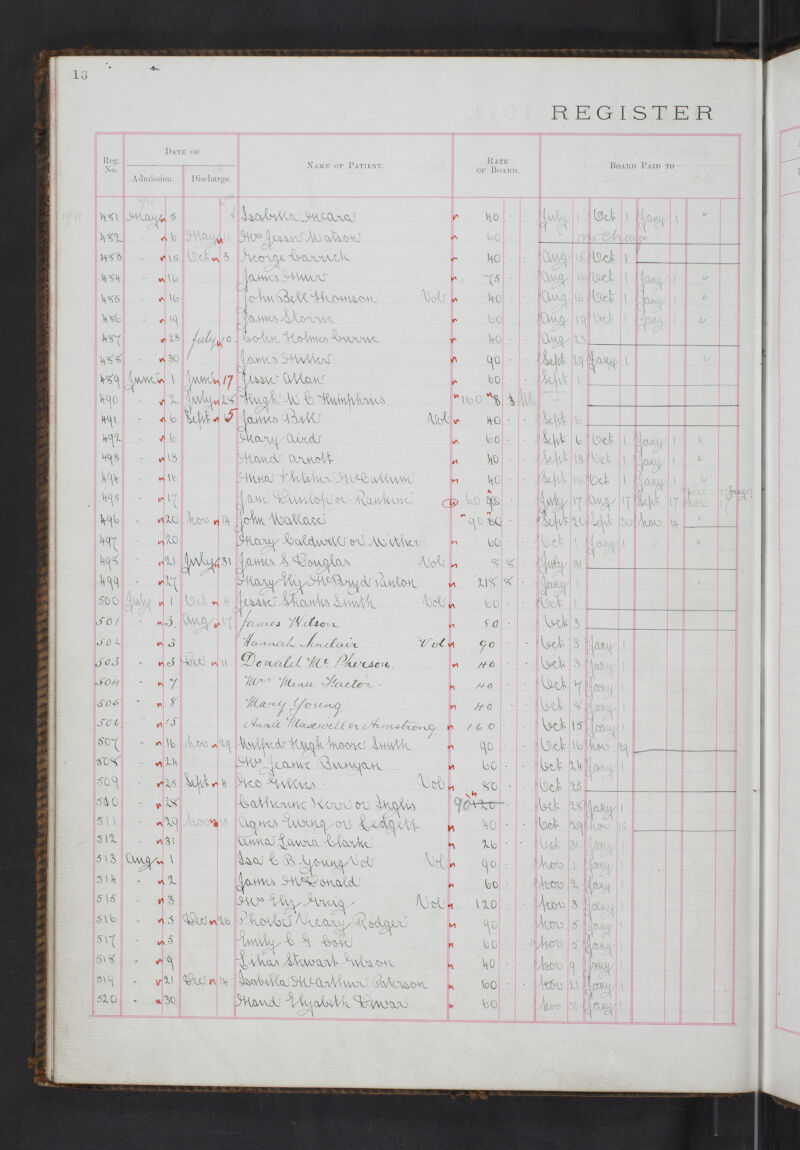 13
REGISTER
Reg. No. DATE OF Admission. Discharge. NAME OF PATIENT. RATE OF BOARD. BOARD PAID TO
481 May 5 Isabella Meara 40 July 1 Oct 1 Jany 1 "
482 " 6 May 11 Mrs Jessie Watson 60 " no charge
483 " 15 Oct 3 George Carrick 40 Aug 15 Oct 1
484 " 16 James Muir 75 Aug 16 Oct 1 Jany 1 "
485 " 16 John Bell Thomson Vol 40 Aug 16 Oct 1 Jany 1 "
486 " 19 James Storrie 60 Aug 19 Oct 1 Jany 1 "
487 " 23 July 10 Colin Holmes Currie 40 Aug 23
488 " 30 James Miller 90 Sept 29 Jany 1 "
489 June 1 June 17 Jessie Allan 60 Sept 1
490 " 2 July 28 Hugh W C Humphries 160 8 8
491 " 6 Sept 5 James Bell Vol 40 Sept 6
492 " 6 Mary Aird 60 Sept 6 Oct 1 Jany 1 "
493 " 13 Maud Arnott 40 Sept 13 Oct 1 Jany 1 "
494 " 16 Anna Fletcher McCallum 40 Sept 16 Oct 1 Jany 1 "
495 " 17 Jane Dunlop or Rankine 60 July 17 Aug 17 Sept 17 Nov 17
496 " 20 Nov 14 John Wallace 90 60 Sept 20 Sept 30 Nov 14 "
497 " 20 Mary Caldwell or Wither 60 Oct 1 Jany 1 "
498 " 21 July 31 James S Douglas Vol 8 8 July 31
499 " 27 Mary Eliz McBryd Panton 218 8 Jany 1 "
500 July 1 Oct 4 Jessie Shanks Smith Vol 60 Oct 1
501 " 3 Aug 17 James Wilson 80 Oct 3
502 " 3 Hannah Sinclair Vol 90 Oct 3 Jany 1
503 " 3 Dec 11 Donald McPherson 40 Oct 3 Jany 1
504 " 7 Mrs Mina Factor 40 Oct 7 Jany 1
505 " 8 Mary Young 40 Oct 8 Jany 1
506 " 15 Annie Maxwell or Armstrong 160 Oct 15 Jany 1
507 " 16 Nov 29 Wilfrid Hugh Moore Smith 90 Oct 16 Nov 29
508 " 24 Mrs Jeanie Bunyan 60 Oct 24 Jany 1
509 " 25 Sept 4 Geo Gillies Vol 80 Oct 25
510 " 28 Catherine Kerr or Inglis 90 120 Oct 28 Jany 1
511 " 29 Nov 15 Agnes Ewing or Ledgitt 40 Oct 29 Nov 15
512 " 31 Anna Laura Clarke 26 Oct 31 Jany 1
513 Aug 1 Isa C B Young Vol Vol 90 Nov 1 Jany 1
514 " 2 James McDonald 60 Nov 2 Jany 1
515 " 3 Mrs Eliz Greig Vol 120 Nov 3 Jany 1
516 " 5 Dec 26 Phoebe Vicary Rodger 90 Nov 5 Jany 1
517 " 5 Emily C G Cole 60 Nov 5 Jany 1
518 " 9 Lilias Stewart Gibson 40 Nov 9 Jany 1
519 " 21 Dec 14 Isabella McArthur Paterson 60 Nov 21 Jany 1
520 " 30 Maud Elizabeth Dewar 60 Nov 30 Jany 1